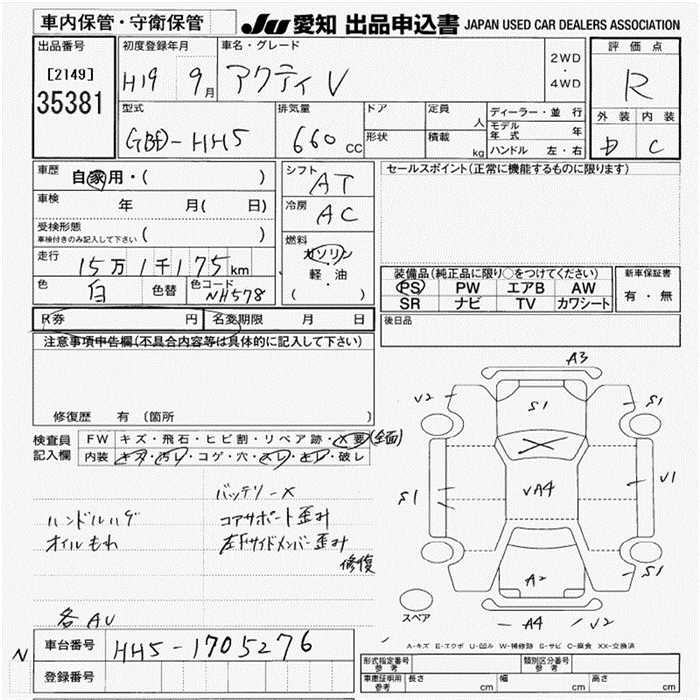 車内保管・守衛保管
JU 愛知 出品申込書 JAPAN USED CAR DEALERS ASSOCIATION
出品番号
[2149]
35381
初度登録年月
H19 9月
車名・グレード
アクティ V
2WD
・
4WD
評価点
R
外装 内装
D C
型式
GBD-HH5
排気量
660 CC
ドア
形状
定員 人
積載 kg
ディーラー・並行
モデル年式 年
ハンドル 左・右
車歴 自家用・( )
車検 年 月( 日)
受検形態
車検付きのみ記入して下さい ( )
走行 15万1千175km
色 白 色替 色コード NH578
シフト AT
冷房 AC
燃料
ガソリン
軽・油
( )
セールスポイント(正常に機能するものに限ります)
装備品(純正品に限り○をつけてください)
PS PW エアB AW
SR ナビ TV カワシート
新車保証書
有・無
R券 円 名変期限 月 日
後日品
注意事項申告欄(不具合内容等は具体的に記入して下さい)
修復歴 有 〔箇所 〕
検査員
記入欄
FW キズ・飛石・ヒビ割・リペア跡・X要 (全面)
内装 キズ・汚レ・コゲ・穴・スレ・破レ
バッテリーX
ハンドルハゲ コアサポート歪み
オイルもれ 左Fサイドメンバー歪み
修復
各AU
N 車台番号 HH5-1705276
登録番号
A3
V2 S1 S1
S1 VA4 V1
A2 S1
スペア
A4 V2
A-キズ E-エクボ U-凹ミ W-補修跡 S-サビ C-腐食 XX-交換済
形式指定番号
参考
類別区分番号
参考
車庫証明用
参考
長さ cm 幅 cm 高さ cm